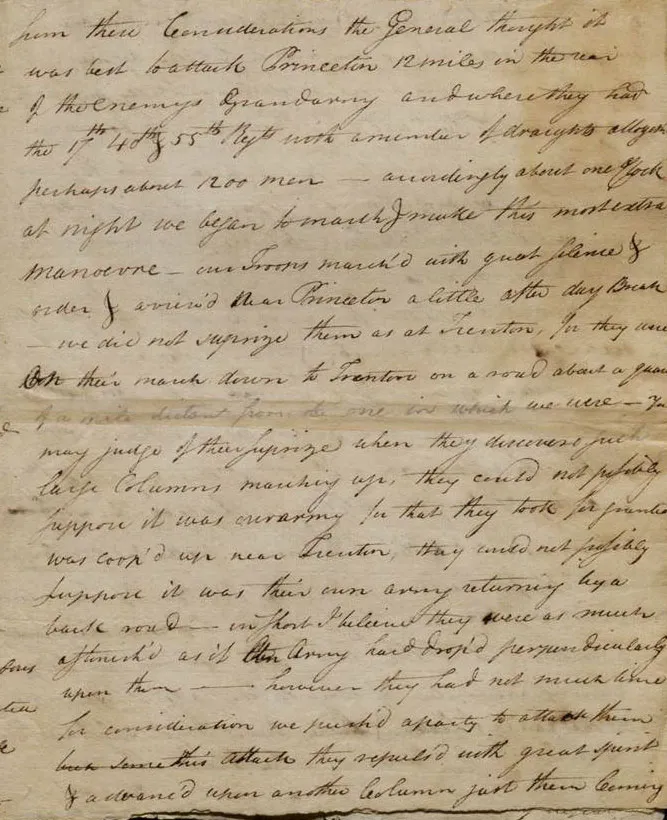 from these Considerations the General thought it
was best to attack Princeton 12 miles in the rear
of the enemys Grand army and where they had
the 17th 40th & 55th Regts with a number of draughts
perhaps about 1200 men — accordingly about one oClock
at night we began to march & make this most extra
manoevre — our Troops march'd with great silence &
order & arriv'd near Princeton a little after day Break
— we did not suprize them as at Trenton, for they were
on their march down to Trenton on a road about a quar
of a mile distant from the one in which we were — You
may judge of their suprize when they discovered such
large Columns marching up, they could not possibly
suppose it was our army for that they took for granted
was coop'd up near Trenton, they could not possibly
suppose it was their own army returning by a
back road — in short I believe they were as much
astonish'd as if an Army had drop'd perpendicularly
upon them — however they had not much time
for consideration we push'd a party to attack them
this attack they repuls'd with great spirit
& advanc'd upon another Column just then Coming